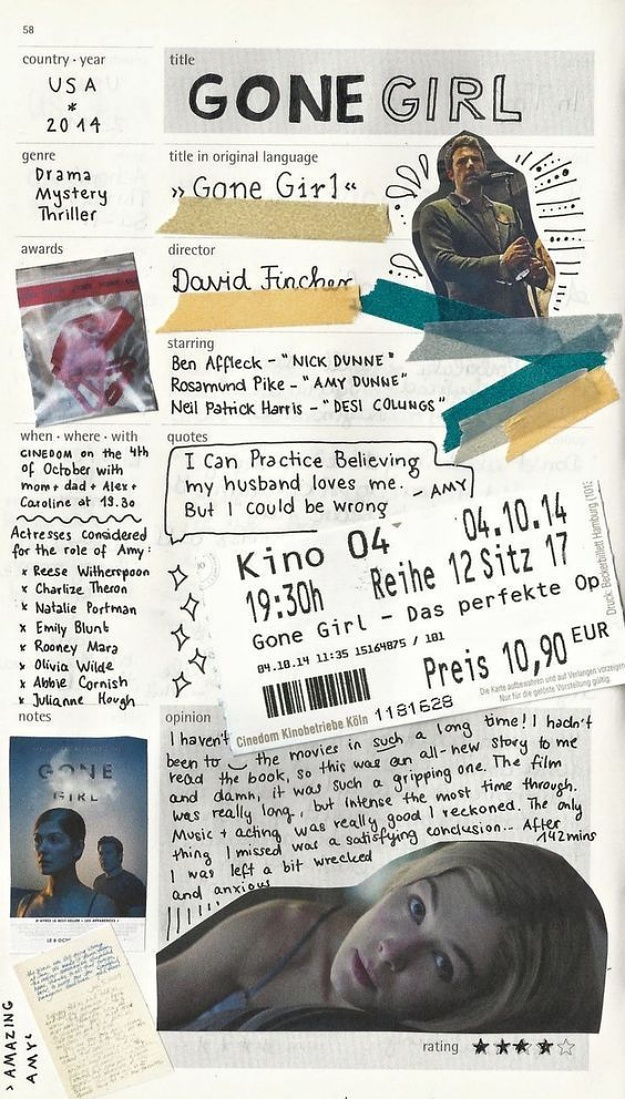 58
country · year
USA
*
2014
title
GONE GIRL
genre
Drama
Mystery
Thriller
title in original language
» Gone Girl «
awards
director
David Fincher
starring
Ben Affleck - "NICK DUNNE"
Rosamund Pike - "AMY DUNNE"
Neil Patrick Harris - "DESI COLLINGS"
when · where · with
CINEDOM on the 4th
of October with
mom + dad + Alex +
Caroline at 19.30
Actresses considered
for the role of Amy:
x Reese Witherspoon
x Charlize Theron
x Natalie Portman
x Emily Blunt
x Rooney Mara
x Olivia Wilde
x Abbie Cornish
x Julianne Hough
quotes
I Can Practice Believing
my husband loves me.
But I could be wrong
- AMY
Kino 04 04.10.14
19:30h Reihe 12 Sitz 17
Gone Girl - Das perfekte Op
04.10.14 11:35 15164875 / 101
Preis 10,90 EUR
Die Karte aufbewahren und auf Verlangen vorzeigen
Nur für die gelöste Vorstellung gültig.
Cinedom Kinobetriebe Köln 1181628
Druck: Beckerbillett Hamburg (101)
notes
GONE
GIRL
> AMAZING
AMY<
opinion
I haven't
been to the movies in such a long time! I hadn't
read the book, so this was an all-new story to me
and damn, it was such a gripping one. The film
was really long, but intense the most time through.
Music + acting was really good I reckoned. The only
thing I missed was a satisfying conclusion... After
142mins
I was left a bit wrecked
and anxious
rating